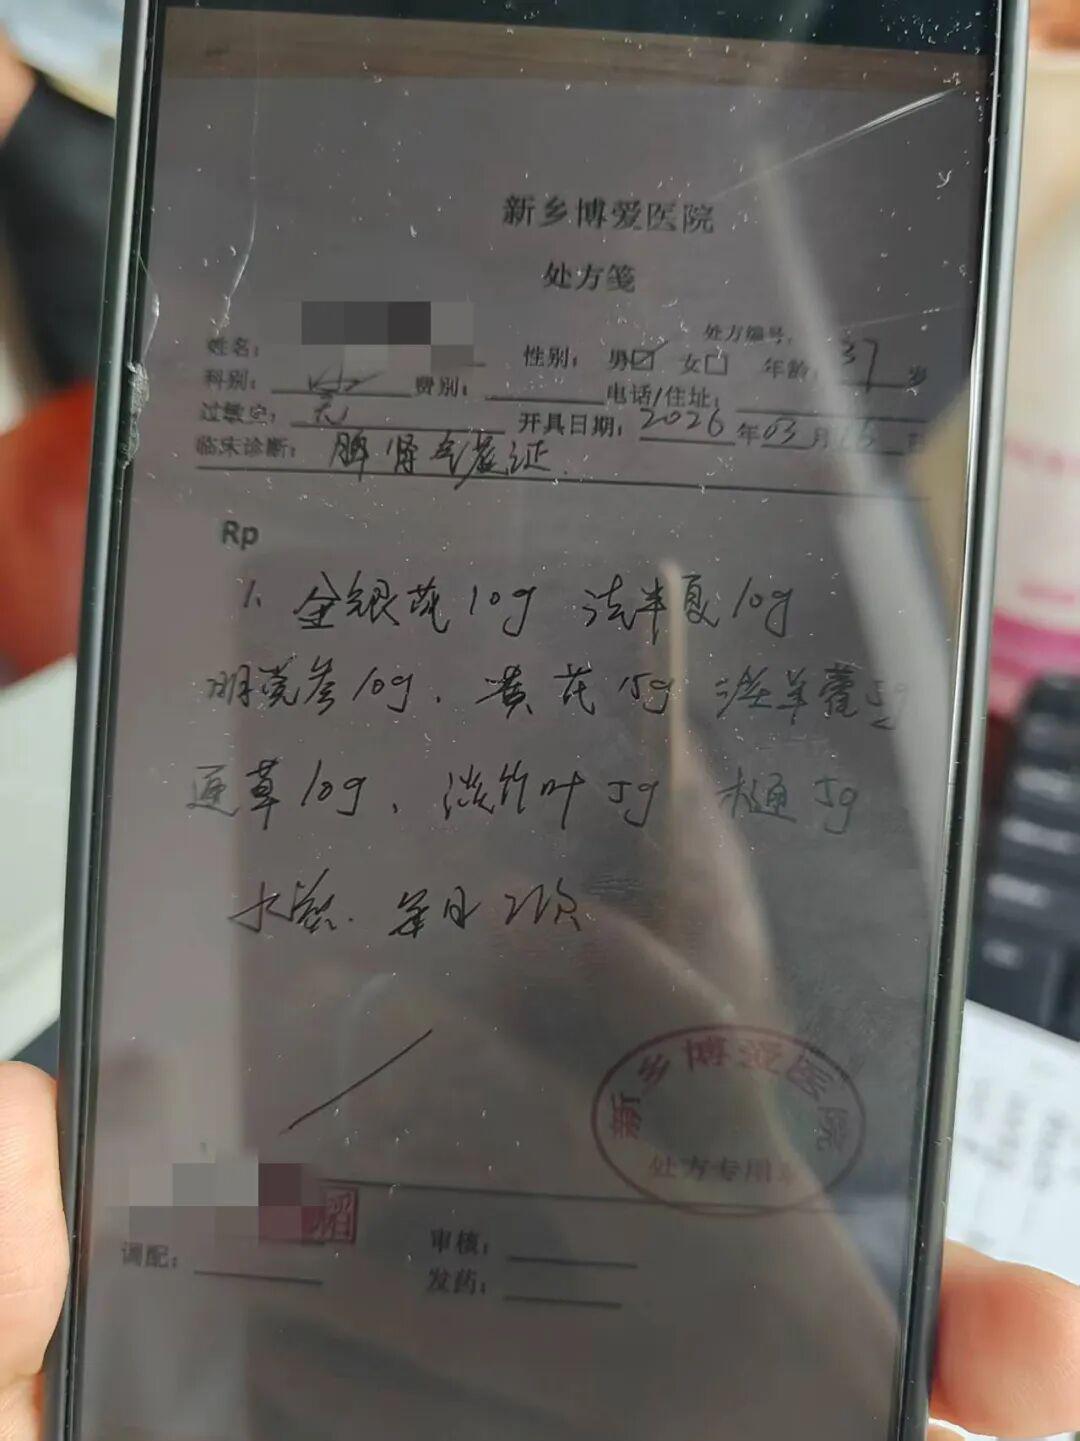 新乡博爱医院
处方笺
处方编号:
姓名: 性别: 男☑ 女☐ 年龄: 37 岁
科别: 费别: 电话/住址:
过敏史: 无 开具日期: 2026 年 03 月
临床诊断: 脾肾气虚证
Rp
1. 金银花10g 法半夏10g
明党参10g. 黄芪15g 淫羊藿5g
通草10g, 淡竹叶5g 木通5g
水煎. 每日2次
新乡博爱医院
处方专用章
调配: 审核:
发药: